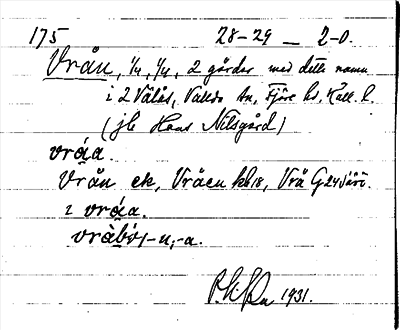 175 28-29 — 2-0.
Vrån, 1/4, 1/4, 2 gårdar med detta namn
i 2 Välås, Fjäre hd, Hall. l.
(jb Hans Nilsgård)
vråa.
Vrån ek, Vråen kb18, Vrå G24
i vråa.
vråbo, -n, -a.
1931.